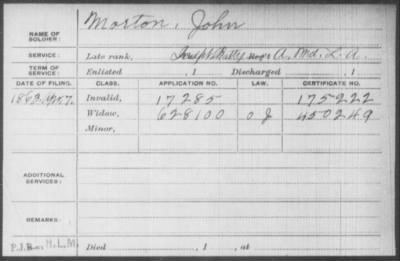 NAME OF SOLDIER: Morton, John
SERVICE: Late rank, Batty A, Md. L. A.
TERM OF SERVICE: Enlisted , 1 Discharged , 1
DATE OF FILING. CLASS. APPLICATION NO. LAW. CERTIFICATE NO.
1863 Apr. 7. Invalid, 17285 175222
Widow, 628100 O J 450249
Minor,
ADDITIONAL SERVICES:
REMARKS:
P.J.B. H.L.M. Died , 1 , at